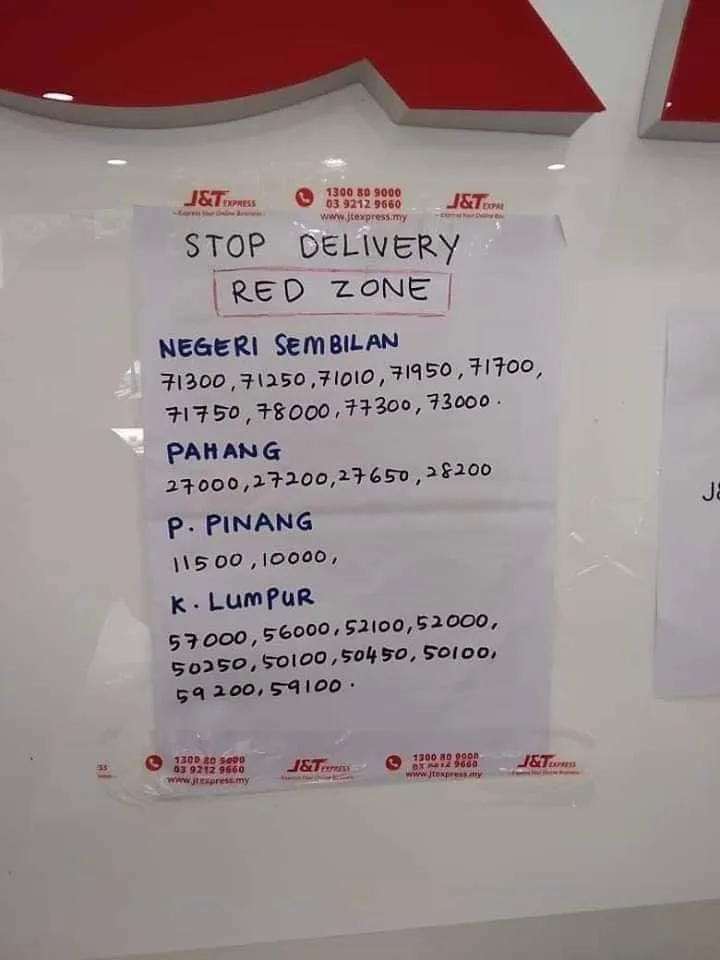 J&T EXPRESS
Express Your Online Business
1300 80 9000
03 9212 9660
www.jtexpress.my
J&T EXPRE
STOP DELIVERY
RED ZONE
NEGERI SEMBILAN
71300, 71250, 71010, 71950, 71700,
71750, 78000, 77300, 73000.
PAHANG
27000, 27200, 27650, 28200
P. PINANG
11500, 10000,
K. LUMPUR
57000, 56000, 52100, 52000,
50250, 50100, 50450, 50100,
59200, 59100.
1300 80 9000
03 9212 9660
www.jtexpress.my
J&T EXPRESS
1300 80 9000
03 9212 9660
www.jtexpress.my
J&T EXPRESS
J&